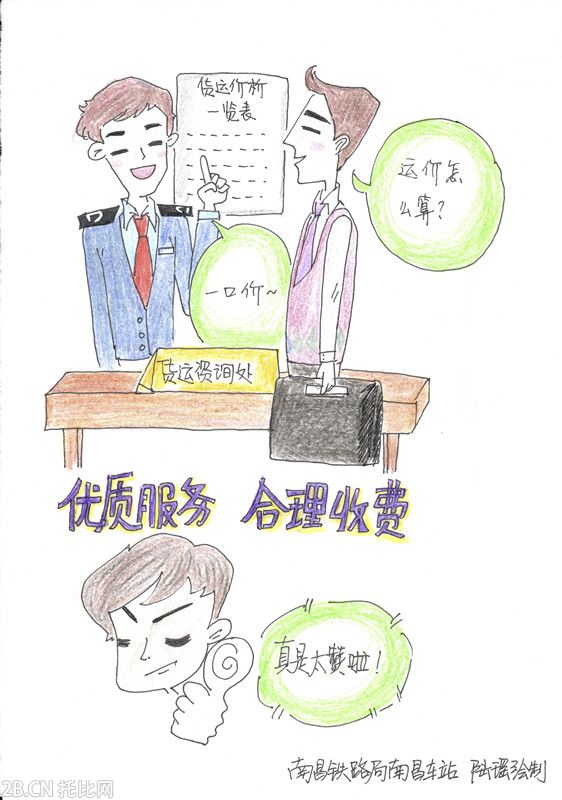 货运价析
一览表
运价怎
么算?
一口价~
货运咨询处
优质服务 合理收费
真是太赞啦!
南昌铁路局南昌车站 陆瑶绘制
2B.CN 托比网